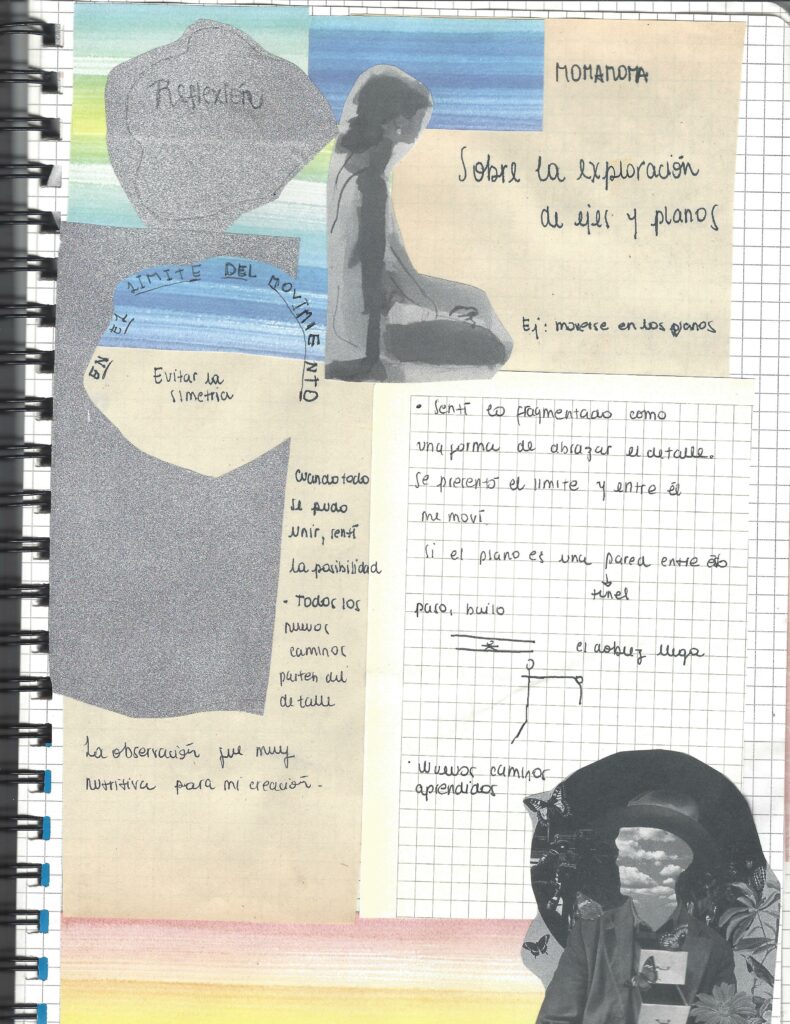 Reflexión
MOMANOMA
Sobre la exploración
de ejes y planos
Ej: moverse en los planos
EN EL LIMITE DEL MOVIMIENTO
Evitar la
simetria
Cuando todo
se pudo
unir, sentí
la posibilidad
• Todos los
nuevos
caminos
parten del
detalle
La observación fue muy
nutritiva para mi creación.
• Sentí lo fragmentado como
una forma de abrazar el detalle.
Se presentó el límite y entre él
me moví.
Si el plano es una pared entre ello
túnel
paso, bailo
el doblez llega
• Nuevos caminos
aprendidos